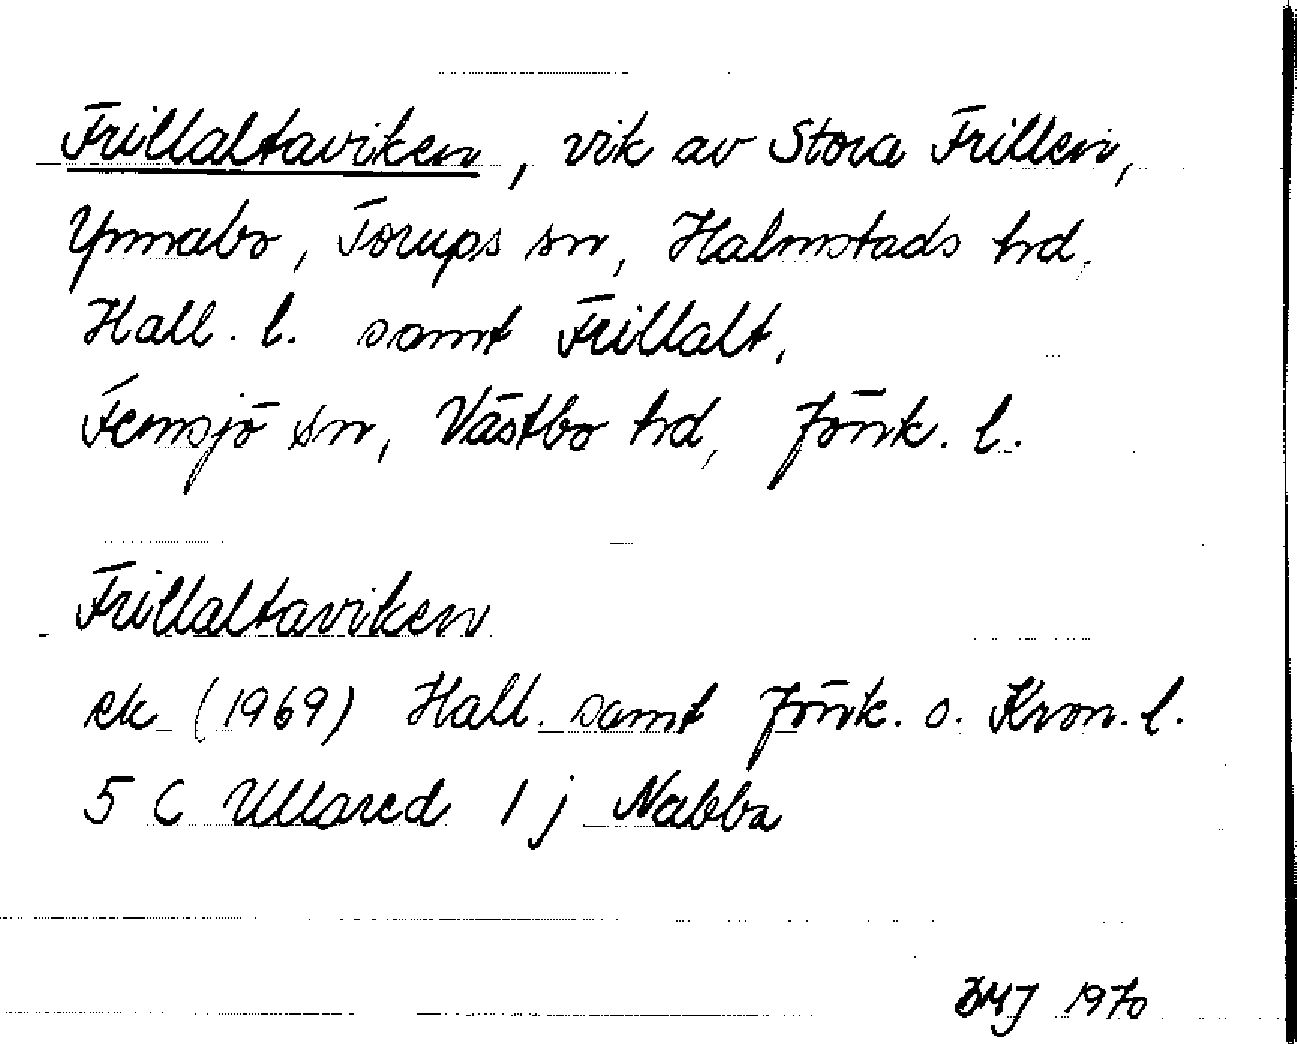 Frillaltaviken, vik av Stora Frillen,
Ynnabo, Torups sn, Halmstads hd,
Hall. l. samt Frillalt,
Femsjö sn, Västbo hd, Jönk. l.
Frillaltaviken
ek (1969) Hall. samt Jönk. o. Kron. l.
5 C Ullared 1 j Nabba
BMJ 1970